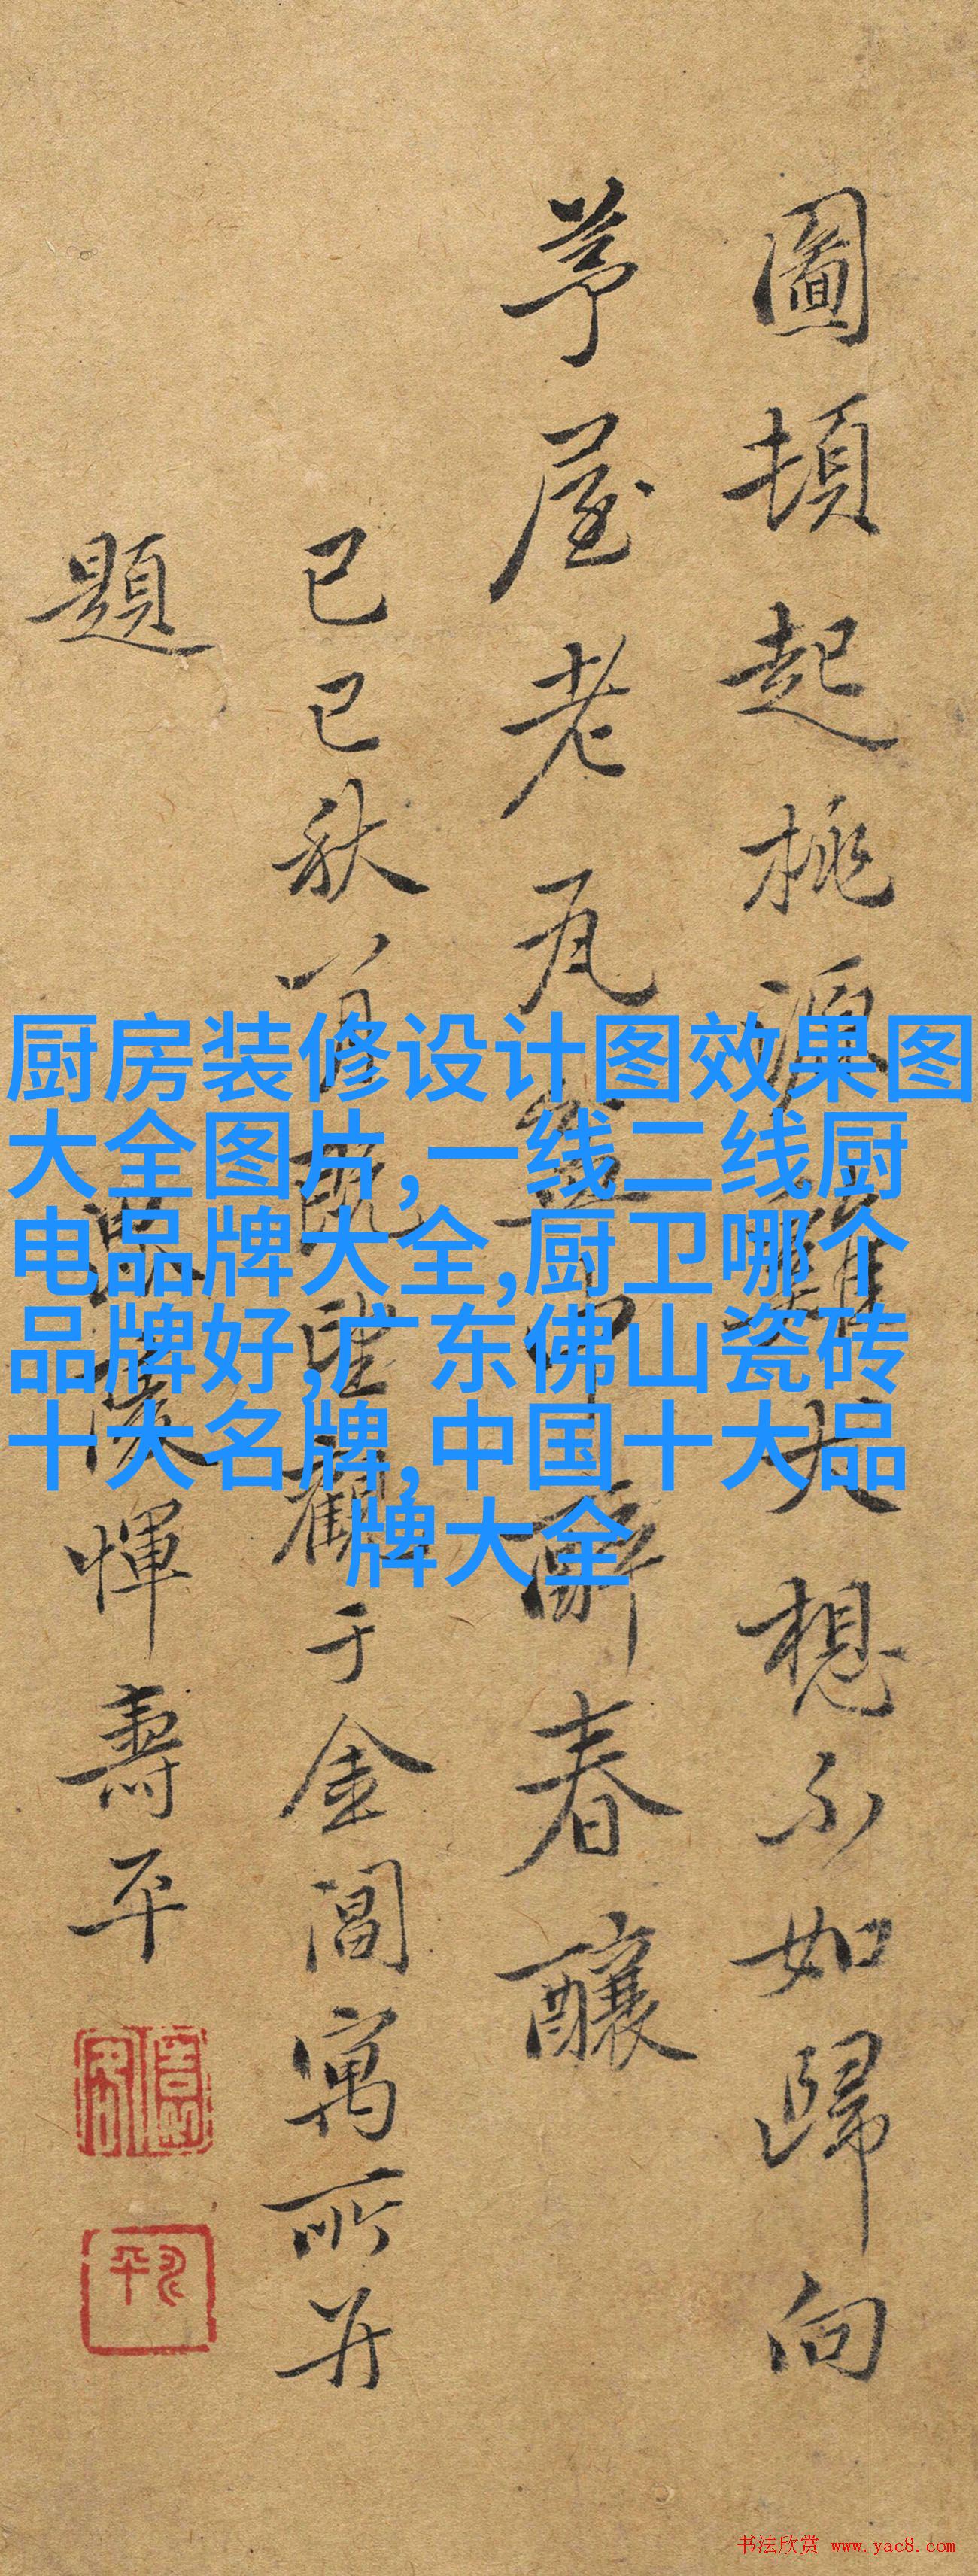 圖頓起桃源雞犬想不如歸向
茅屋老瓦盆中醉春釀
己巳秋八月既望觀于金閶寓所并
題
毗陵惲壽平
厨房装修设计图效果图
大全图片,一线二线厨
电品牌大全,厨卫哪个
品牌好,广东佛山瓷砖
十大名牌,中国十大品
牌大全
书法欣赏 www.yac8.com